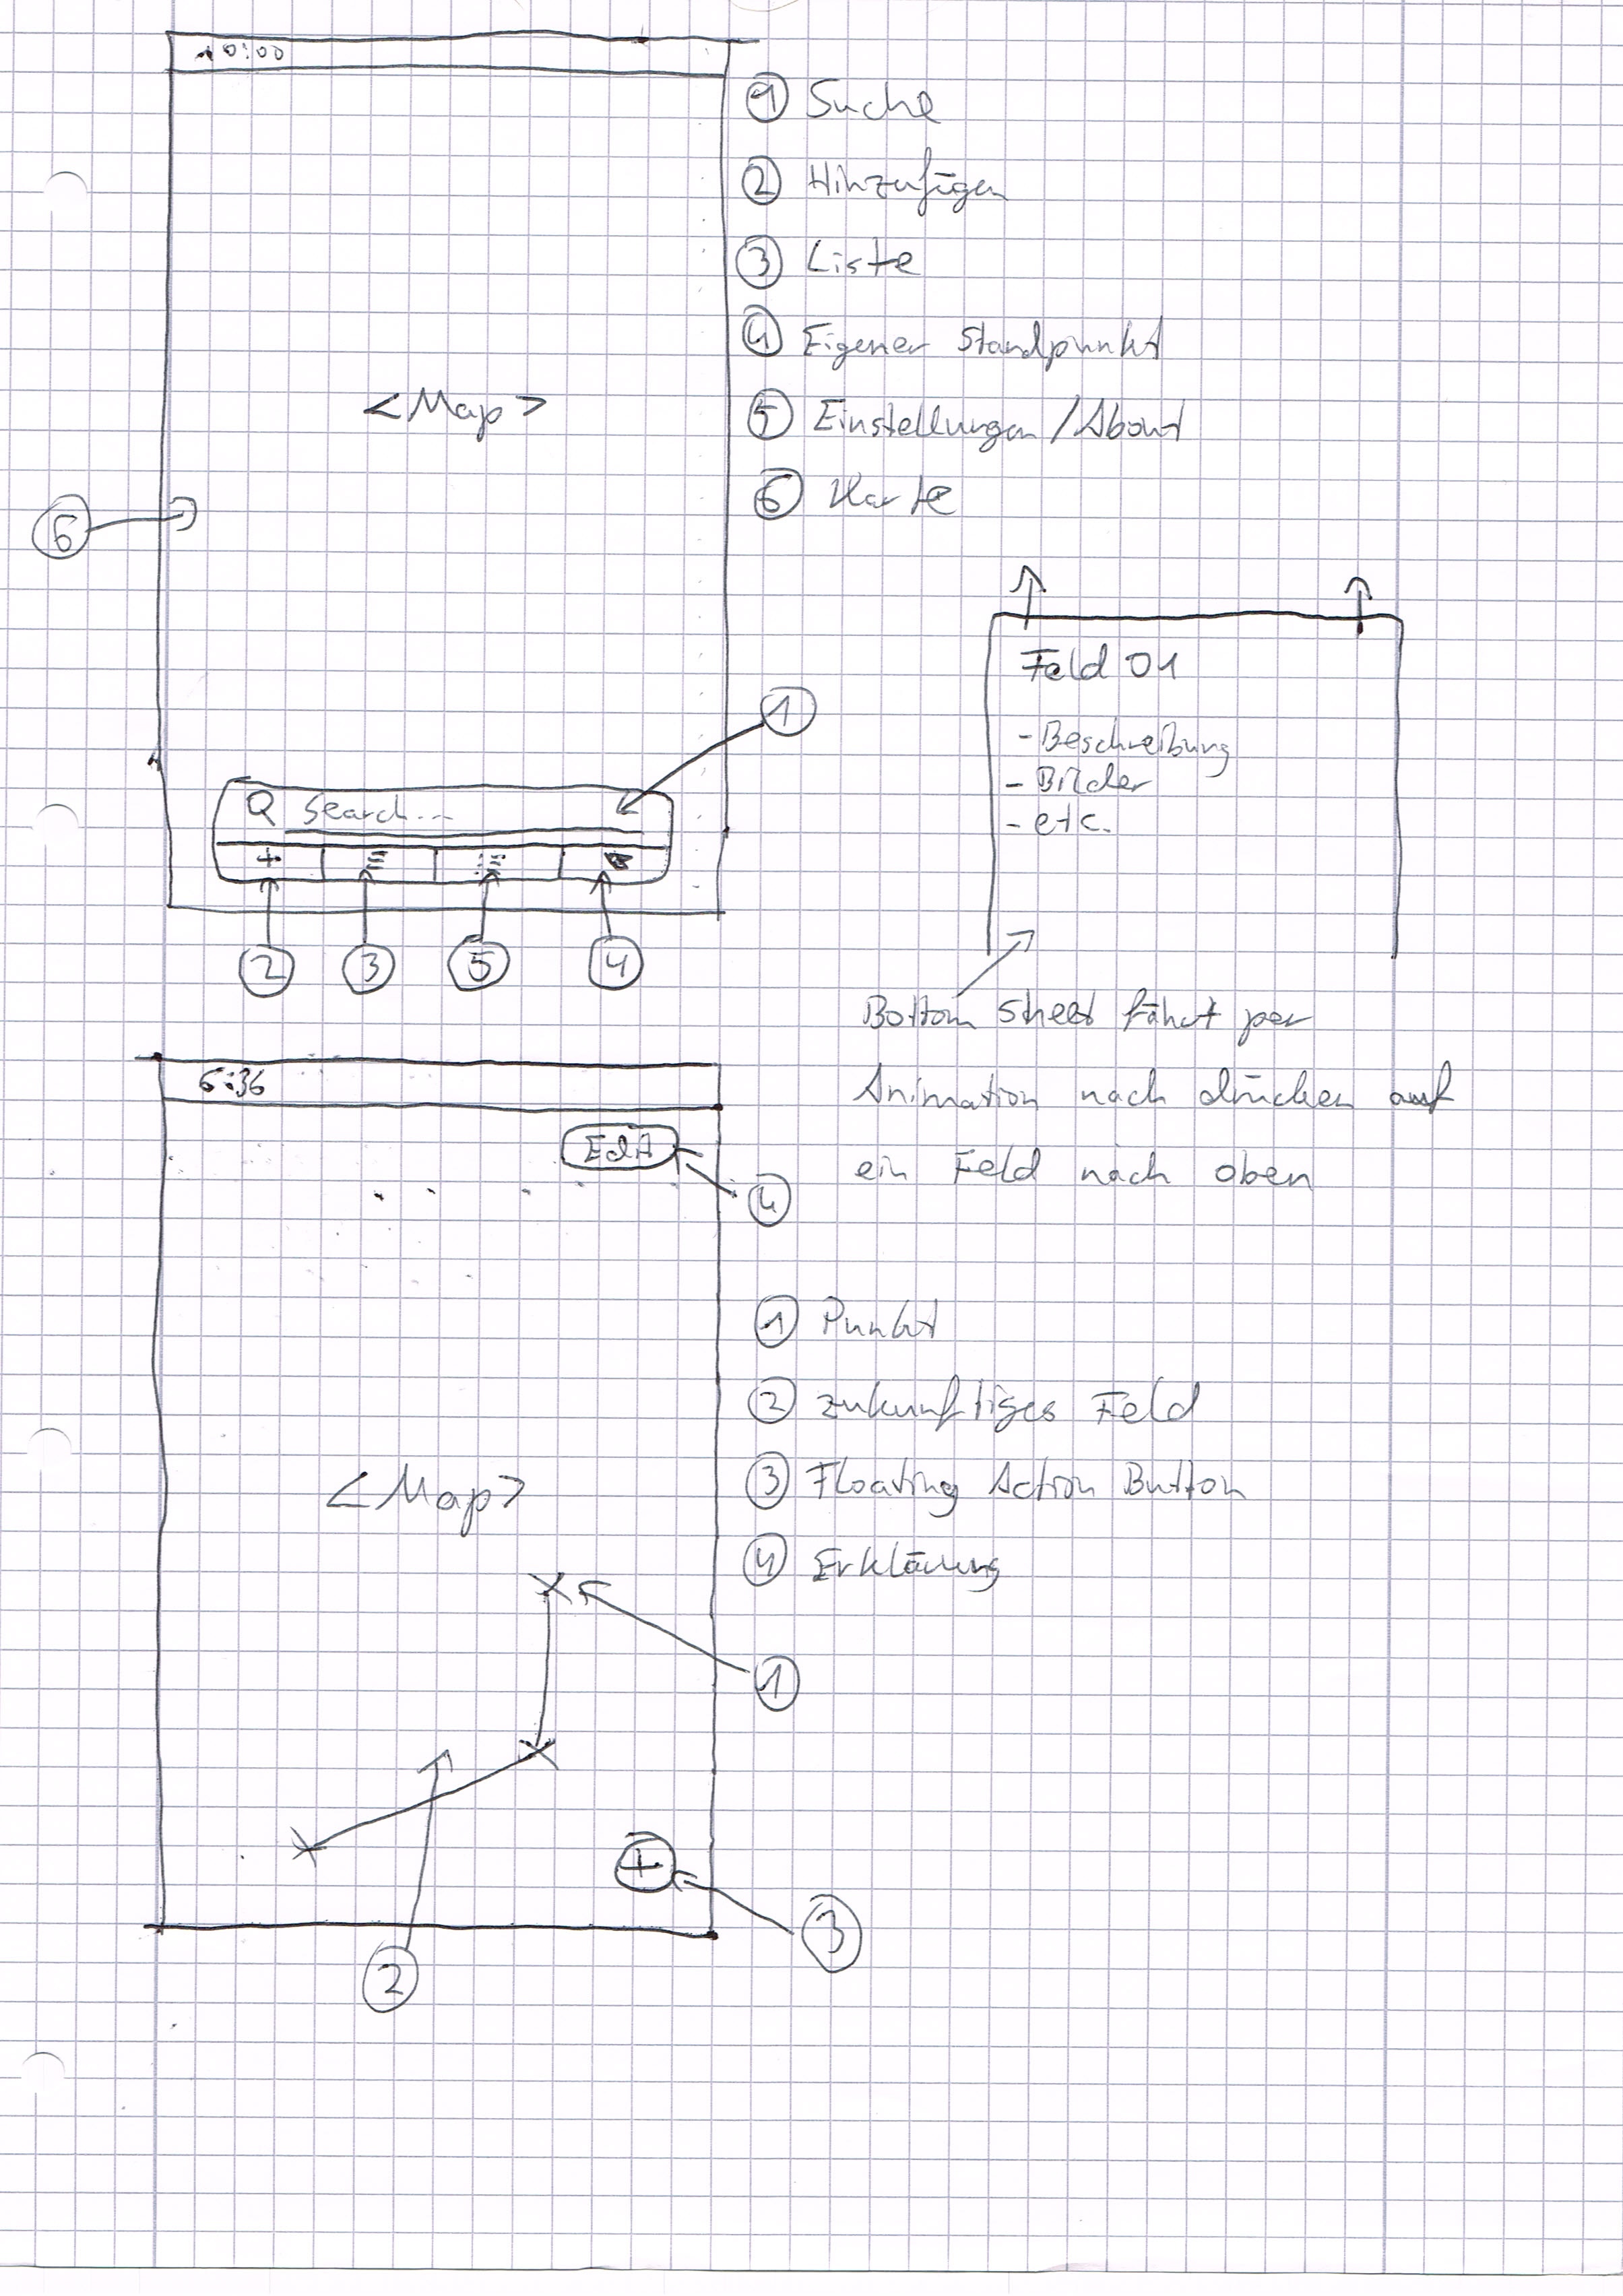 10:00
① Suche
② Hinzufügen
③ Liste
④ Eigener Standpunkt
⑤ Einstellungen / About
⑥ Karte
<Map>
⑥
①
Search...
+
② ③ ⑤ ④
Feld 01
- Beschreibung
- Bilder
- etc.
Bottom Sheet fährt per
Animation nach drücken auf
ein Feld nach oben
6:36
Edit
④
① Punkt
② zukünftiges Feld
③ Floating Action Button
④ Erklärung
<Map>
①
+
③
②